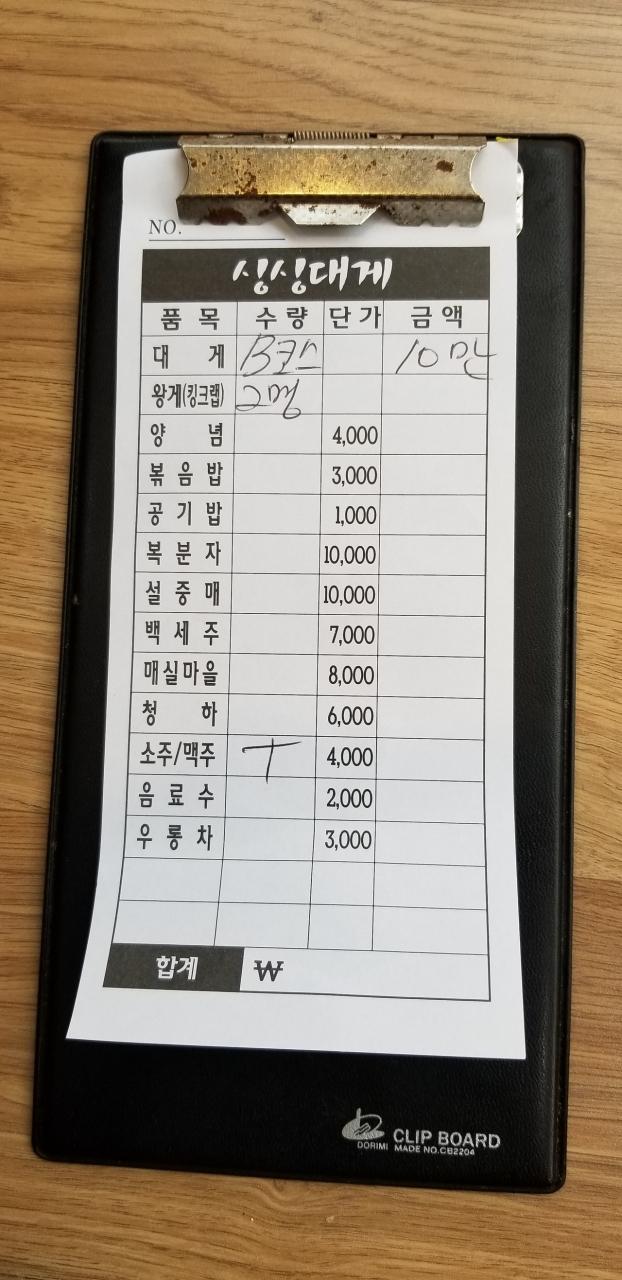 NO.
싱싱대게
품 목 수 량 단 가 금 액
대 게 B코스 10만
왕게(킹크랩) 2명
양 념 4,000
볶 음 밥 3,000
공 기 밥 1,000
복 분 자 10,000
설 중 매 10,000
백 세 주 7,000
매실마을 8,000
청 하 6,000
소주/맥주 ㅜ 4,000
음 료 수 2,000
우 롱 차 3,000
합계 ₩
CLIP BOARD
DORIMI MADE NO.CB2204